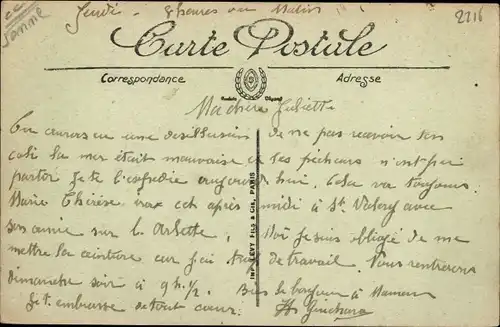 Jeudi - 8 heures du Matin
2216
de
Jeanne
Carte Postale
Correspondance
Adresse
Ma chère Juliette
Tu auras eu une desillusion de ne pas recevoir ton
coli la mer était mauvaise et les pécheurs n'ont pu
partir je te l'expedie aujourd'hui. Cela va toujours
Marie Thérèse ira cet après midi à St Valery avec
son amie sur l. Arlette, Moi je suis obligé de me
mettre la ceinture car j'ai trop de travail. Nous rentrerons
dimanche soir à 9 h. 1/2. Bien le bonjour à Maman
Je t'embrasse de tout cœur.
IMP. LEVY FILS & Cie, PARIS